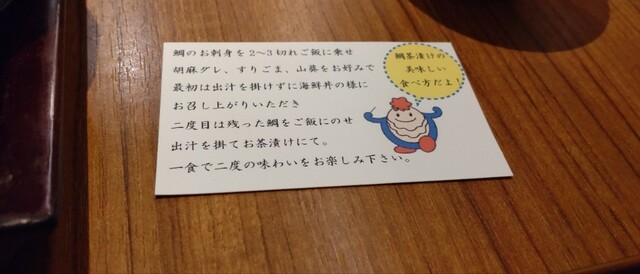 鯛のお刺身を2〜3切れご飯に乗せ
胡麻ダレ、すりごま、山葵をお好みで
最初は出汁を掛けずに海鮮丼の様に
お召し上がりいただき
二度目は残った鯛をご飯にのせ
出汁を掛てお茶漬けにて。
一食で二度の味わいをお楽しみ下さい。
鯛茶漬けの
美味しい
食べ方だよ!